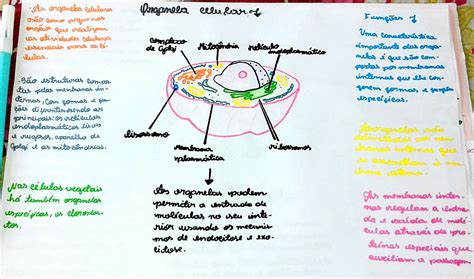 Organela celular
-As organelas celulares
são como pequenos
órgãos que realizam
as atividades celulares
essenciais para as cé-
lulas.
-São estruturas compos-
tas pelas membranas in-
ternas, com formas e fun-
ções diferentes sendo as
principais: os retículos
endoplasmáticos lisos
e rugosos, aparelho de
Golgi e as mitocôndrias.
Nas células vegetais
há também organelas
específicas, os
complexo
de Golgi
Mitocôndria
retículo
endoplasmático
lisossomo
Membrana
plasmática
ribossomos
As organelas podem
permitir a entrada de
moléculas no seu inte-
rior usando os mecanis-
mos de endocitose e exo-
citose.
Funções
Uma característica
importante das orga-
nelas é que são com-
postas por membranas
internas que lhe con-
ferem formas e funções
específicas.
As organelas são
que
se assemelham a
As membranas inter-
nas regulam a entra-
da e saída de molé-
culas através de pro-
teínas especiais que
auxiliam a passagem